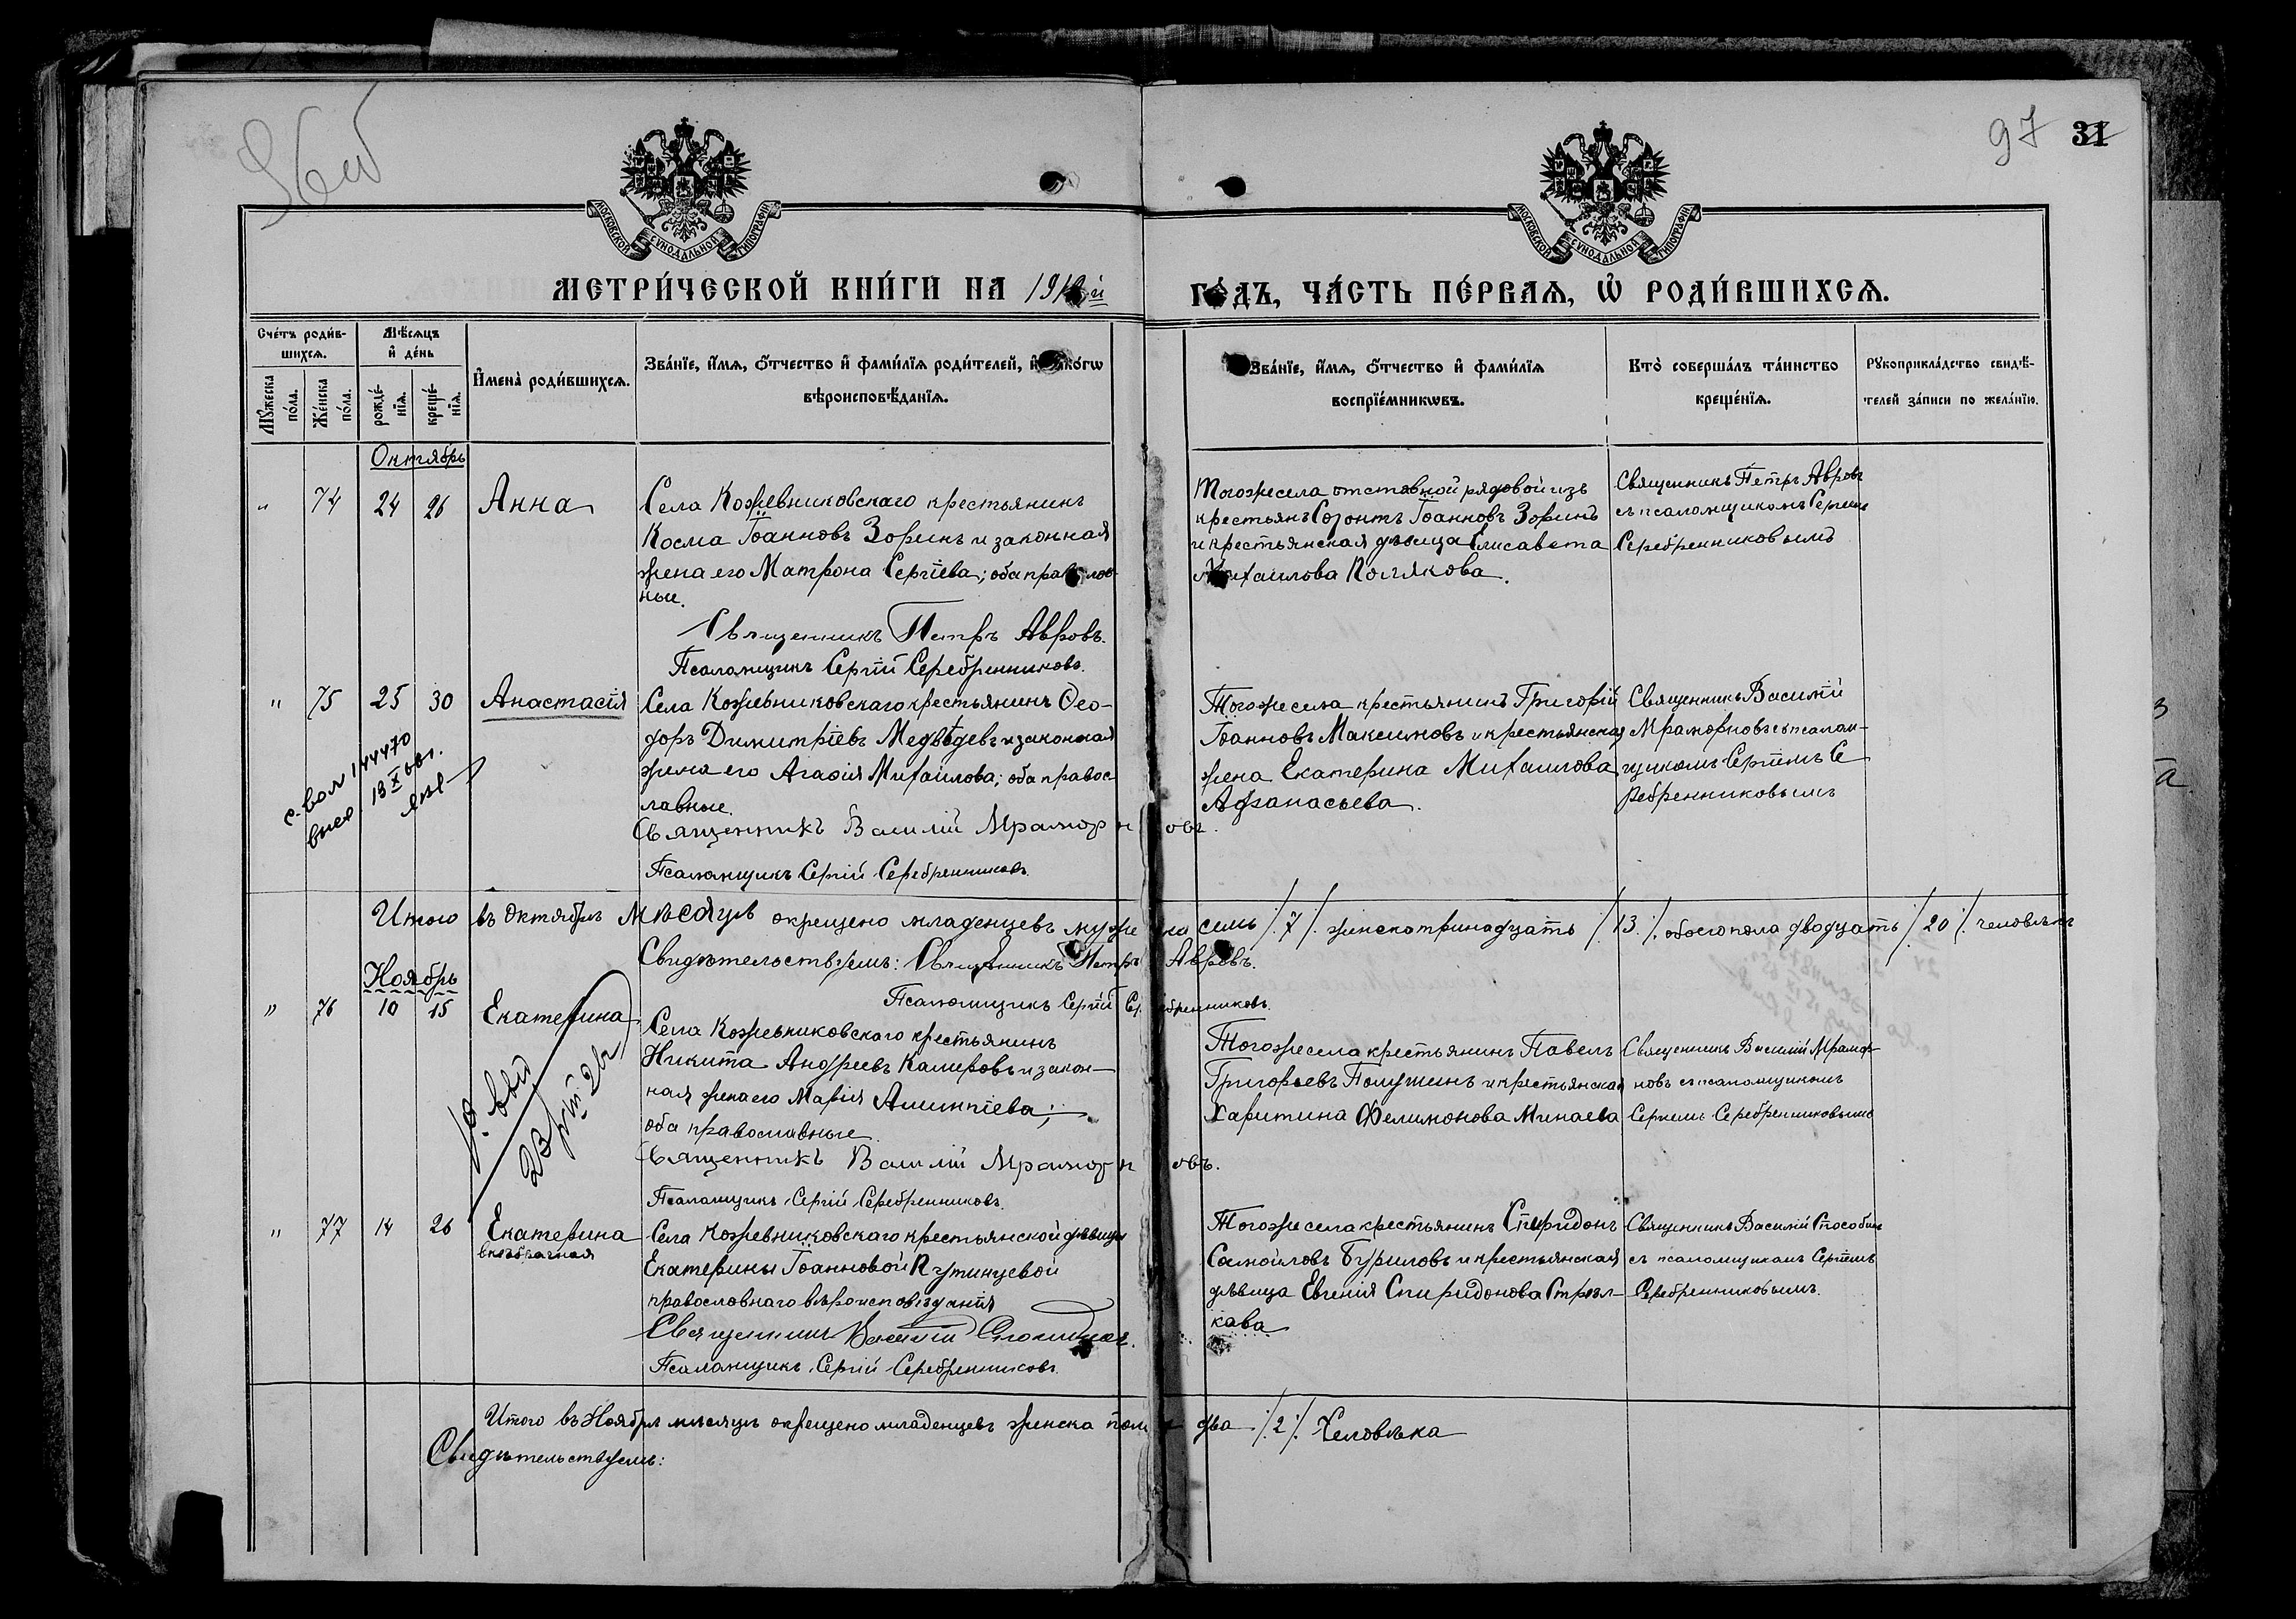 97 31
МОСКОВСКОЙ СѴНОДАЛЬНОЙ ТИПОГРАФІИ
МОСКОВСКОЙ СѴНОДАЛЬНОЙ ТИПОГРАФІИ
МЕТРИ́ЧЕСКОЙ КНИ́ГИ НА
ГОДЪ, ЧА́СТЬ ПЕ́РВАѦ, Ѡ РОДИ́ВШИХСѦ.
Сче́тъ роди́в-
шихсѧ.
Мѣ́сѧцъ
и҆ де́нь
Мꙋ́жеска
по́ла.
Же́нска
по́ла.
рожде́-
нїѧ.
креще́-
нїѧ.
И҆мена̀ роди́вшихсѧ.
Зва́нїе, и҆́мѧ, ѻ҆́тчество и҆ фами́лїѧ роди́телей, и҆ како́гѡ
вѣроисповѣ́данїѧ.
Зва́нїе, и҆́мѧ, ѻ҆́тчество и҆ фами́лїѧ
воспрїе́мникѡвъ.
Кто̀ соверша́лъ та́инство
креще́нїѧ.
Рꙋкоприкла́дство свидѣ́-
телей за́писи по жела́нїю.
Октябрь
" 74 24 26 Анна
Села Кожевниковскаго крестьянинъ
Косма Іоанновъ Зоринъ и законная
жена его Матрона Сергіева; оба православ-
ные.
Священникъ Петръ Авровъ.
Псаломщикъ Сергій Серебренниковъ.
Того же села отставной рядовой изъ
крестьянъ Созонтъ Іоанновъ Зоринъ
и крестьянская дѣвица Елисавета
Михаилова Полякова.
Священникъ Петръ Авровъ
съ псаломщикомъ Сергіемъ
Серебренниковымъ
" 75 25 30 Анастасія
Села Кожевниковскаго крестьянинъ Ѳео-
доръ Димитріевъ Медвѣдевъ и законная
жена его Агафія Михаилова; оба правос
лавные.
Священникъ Василій Мраморновъ.
Псаломщикъ Сергій Серебренниковъ.
Того же села крестьянинъ Григорій
Іоанновъ Максимовъ и крестьянская
жена Екатерина Михаилова
Афанасьева.
Священникъ Василій
Мраморновъ съ псалом-
щикомъ Сергіемъ Се
ребренниковымъ
144470
13 X 66г.
Итого въ Октябрѣ мѣсяцѣ окрещено младенцевъ мужеска семь /7/. женска тринадцать /13/. обоего пола двадцать /20/. человѣкъ
Свидѣтельствуемъ: Священникъ Петръ Авровъ.
Псаломщикъ Сергій Серебренниковъ.
Ноябрь
" 76 10 15 Екатерина
Села Кожевниковскаго крестьянинъ
Никита Андреевъ Камировъ и закон-
ная жена его Марія Алимпіева;
оба православные.
Священникъ Василій Мраморновъ.
Псаломщикъ Сергій Серебренниковъ.
Того же села крестьянинъ Павелъ
Григорьевъ Полушинъ и крестьянская
Харитина Филимонова Минаева
Священникъ Василій Мрамор-
новъ съ псаломщикомъ
Сергіемъ Серебренниковымъ
" 77 14 26 Екатерина
внѣбрачная
Села Кожевниковскаго крестьянской дѣвицы
Екатерины Іоанновой Путинцевой
православнаго вѣроисповѣданія
Священникъ Василій
Псаломщикъ Сергій Серебренниковъ.
Того же села крестьянинъ Спиридонъ
Самойловъ Буриловъ и крестьянская
дѣвица Евгенія Спиридонова Стрѣл-
кова
Священникъ Василій
съ псаломщикомъ Сергіемъ
Серебренниковымъ.
Итого въ Ноябрѣ мѣсяцѣ окрещено младенцевъ женска пола два /2/. Человѣка
Свидѣтельствуемъ: